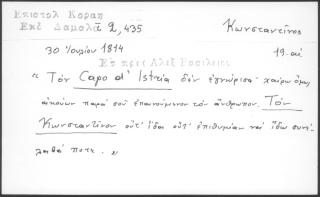 Επιστολ Κοραη
Εκδ Δαμαλᾶ 2,435
Κωνσταντῖνος
30 Ἰουλίου 1814
19. αἰ
Ἐν πρὸς Ἀλεξ Βασιλειου
« Τὸν Capo d' Istria δὲν ἐγνώρισα· χαίρω ὅμως
ἀκούων παρὰ σοῦ ἐπαινούμενον τὸν ἄνθρωπον. Τὸν
Κωνσταντῖνον οὔτ' εἶδα οὔτ' ἐπιθυμίαν νὰ ἴδω συνέ-
λαβά ποτε. »